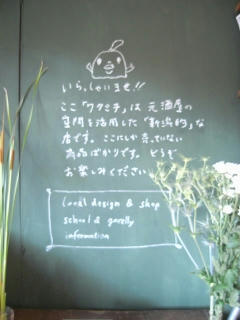 いらっしゃいませ!!
ここ「ワタミチ」は 元酒屋の
空間を活用した「新潟的」な
店です。ここにしか売っていない
商品ばかりです。どうぞ
お楽しみください
local design & shop
school & garelly
information